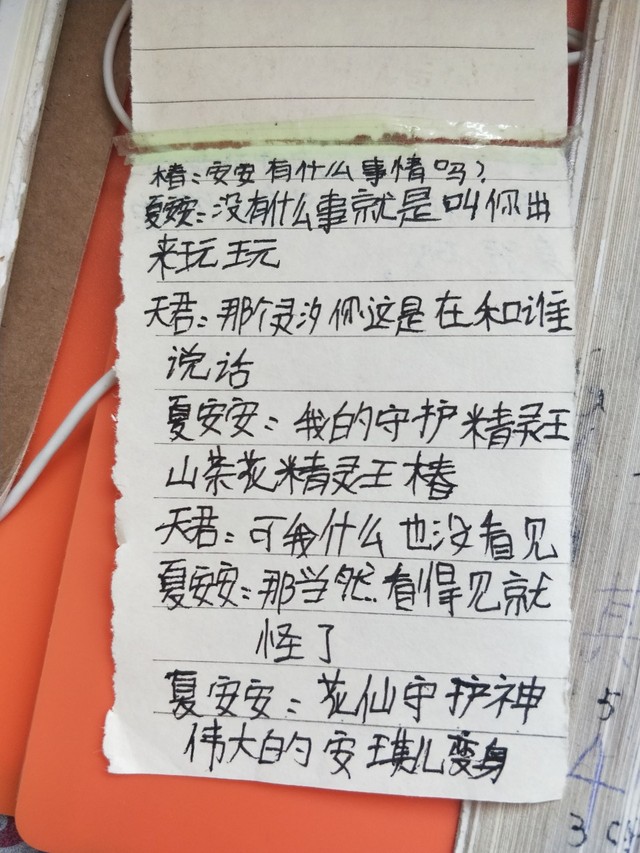 椿:安安有什么事情吗?
夏安安:没有什么事就是叫你出
来玩玩
天君:那个灵汐你这是在和谁
说话
夏安安:我的守护精灵王
山茶花精灵王椿
天君:可我什么也没看见
夏安安:那当然.看得见就
怪了
夏安安:花仙守护神
伟大的安琪儿变身
5
4
3